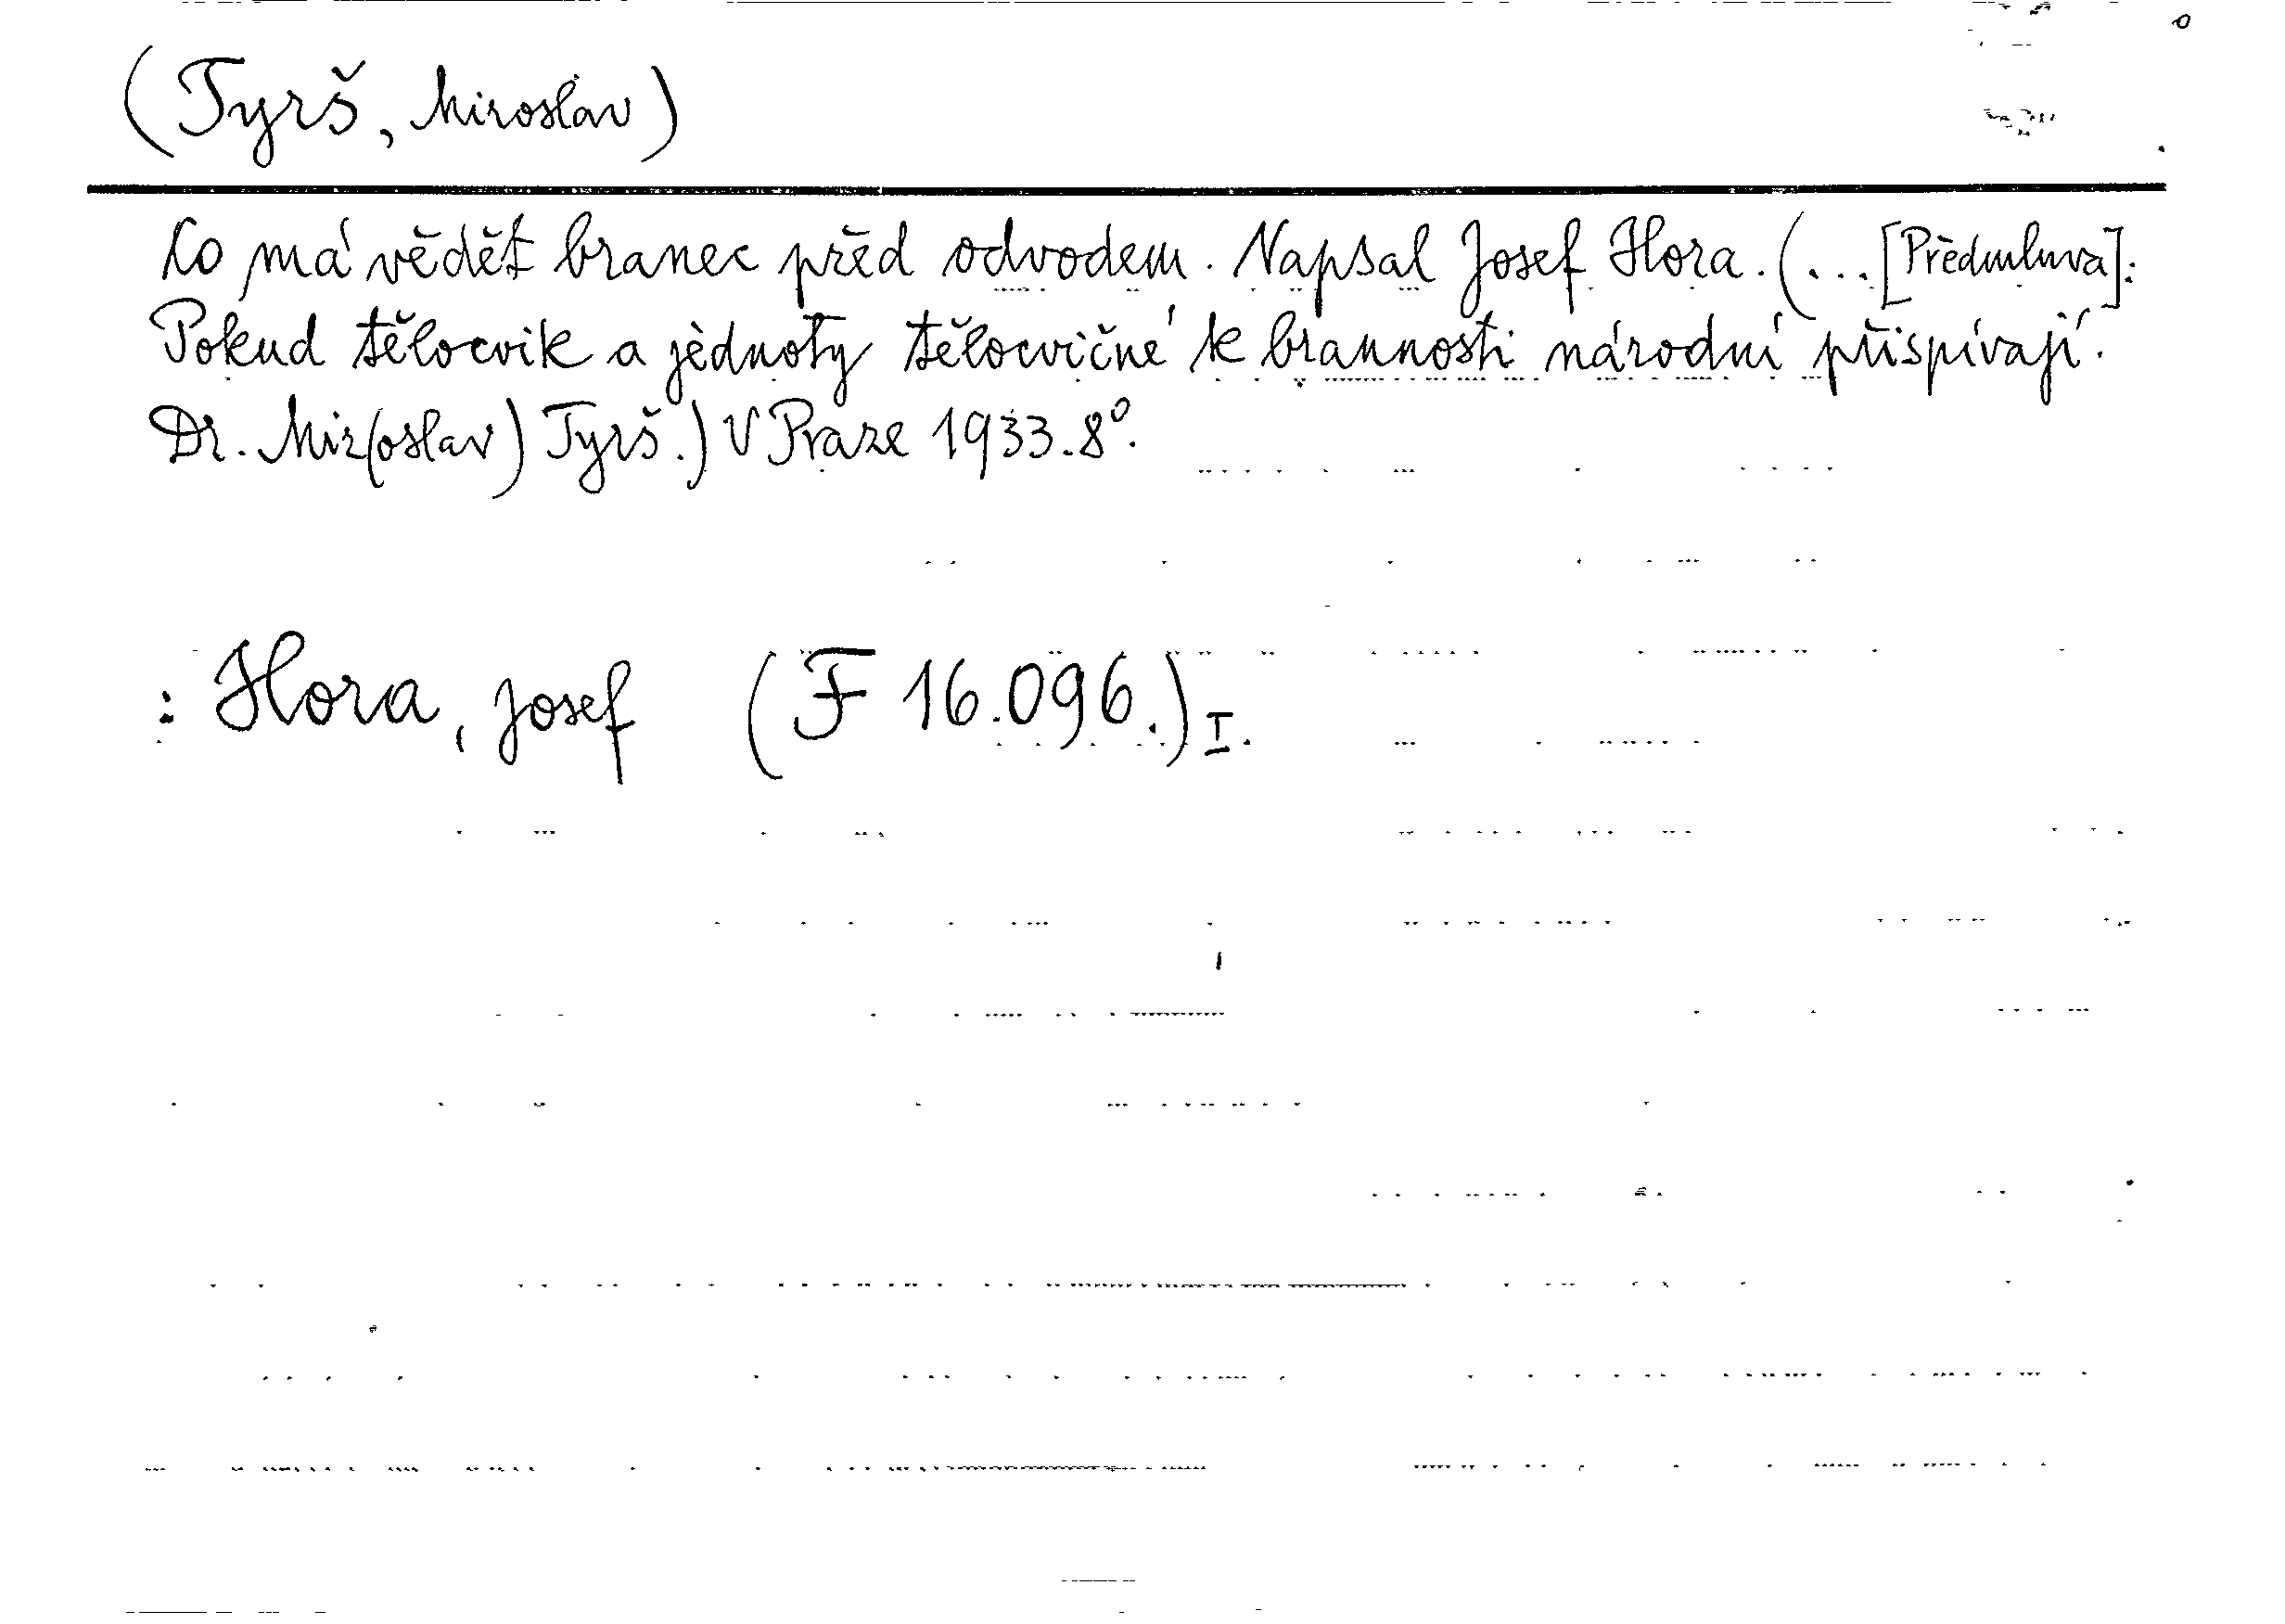 (Tyrš, Miroslav)
Co má vědět branec před odvodem. Napsal Josef Hora. (... [Předmluva]:
Pokud tělocvik a jednoty tělocvičné k brannosti národní přispívají.
Dr. Mir(oslav) Tyrš.) V Praze 1933. 8°.
: Hora, Josef (F 16.096.) I.